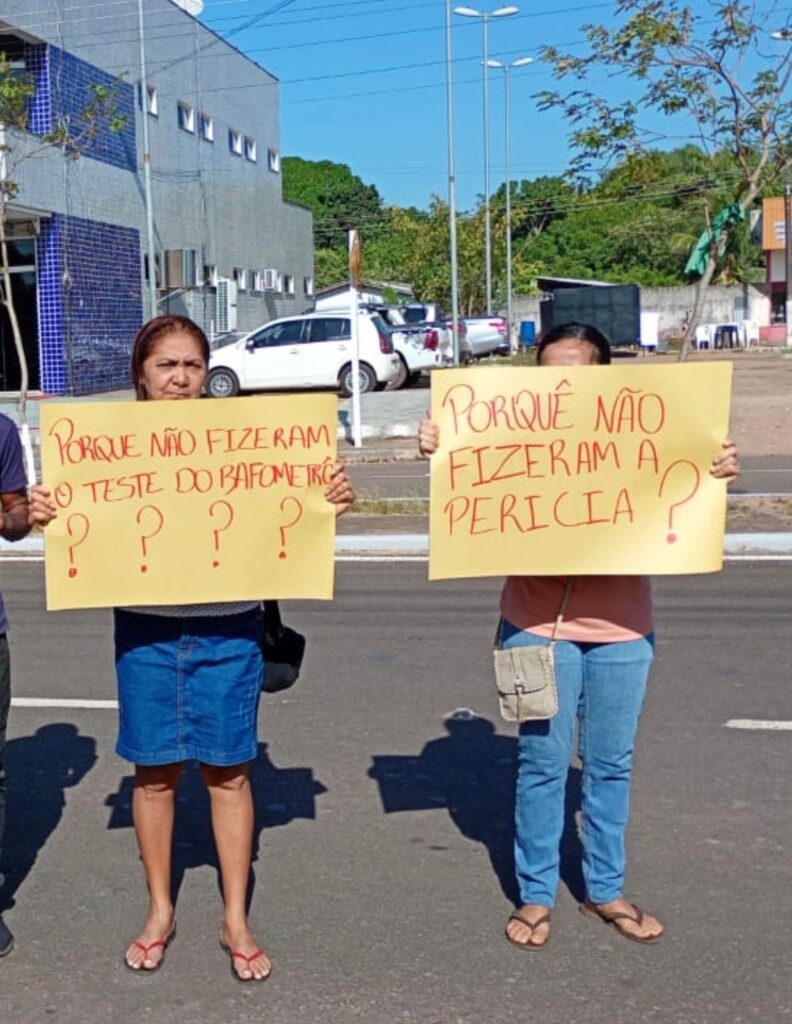 PORQUE NÃO FIZERAM
O TESTE DO BAFOMETRÔ
? ? ? ?
PORIQUÊ NÃO
FIZERAM A
PERICIA ?